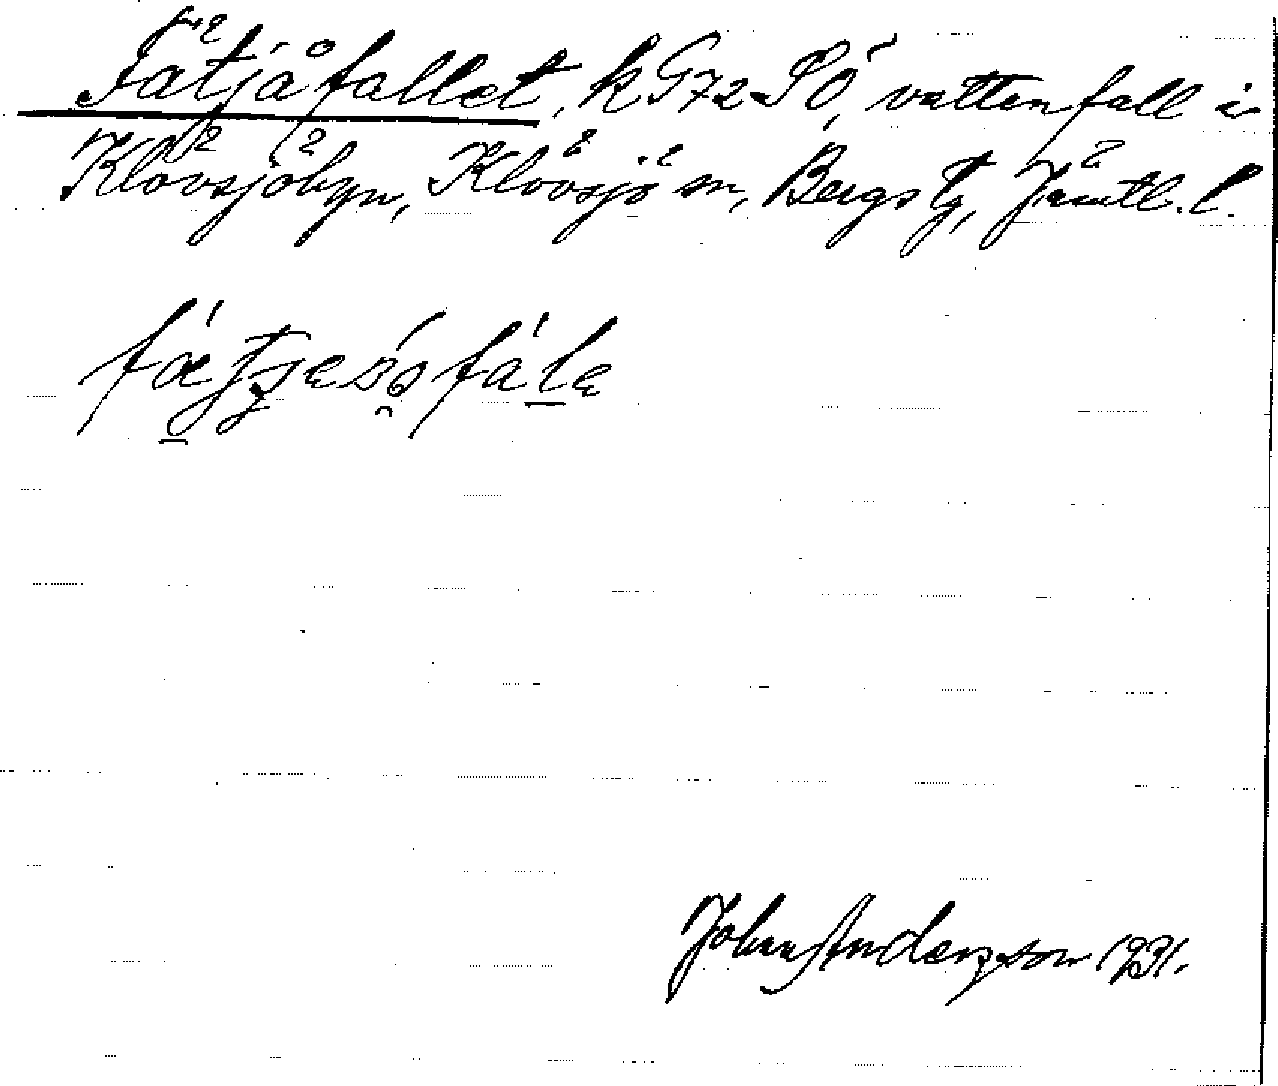 Fätjåfallet, k G72 SÖ, vattenfall i
Klövsjöbyn, Klövsjö sn, Bergs tg, Jämtl. l.
John Anderzson 1931.